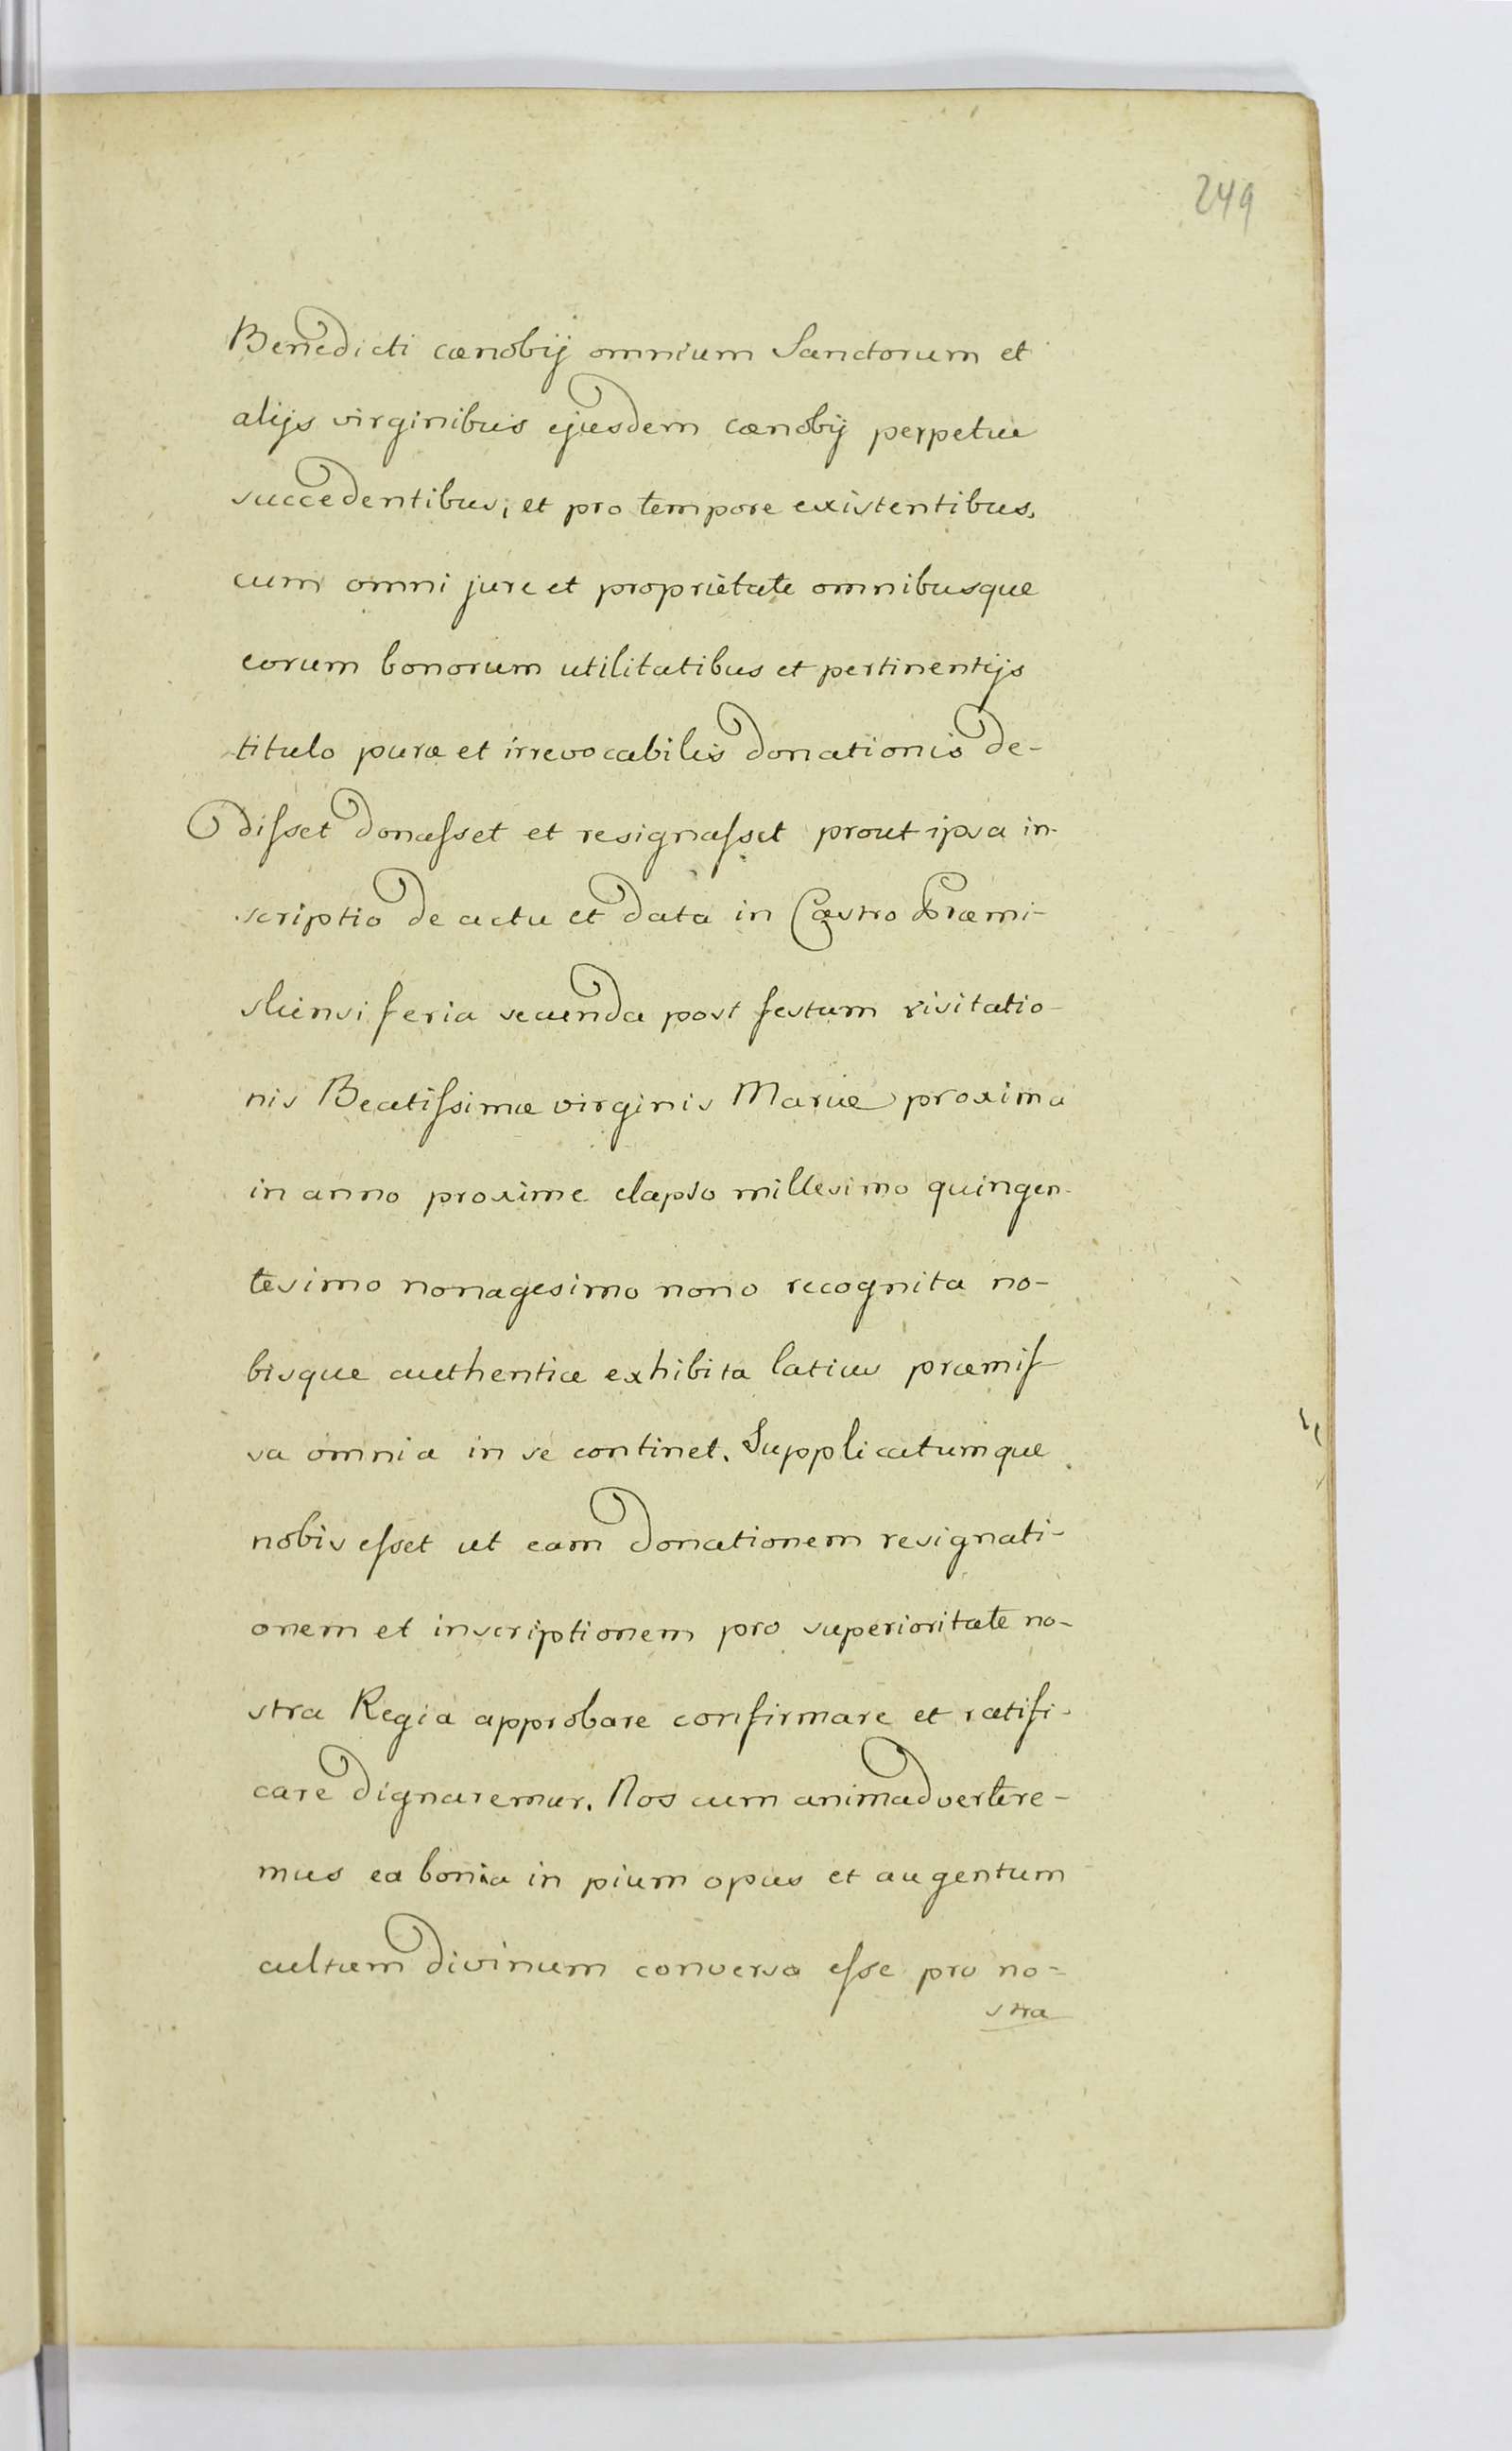 249
Benedicti cœnobij omnium Sanctorum et
alijs virginibus ejusdem cœnobij perpetue
succedentibus, et pro tempore existentibus,
cum omni jure et proprietate omnibusque
eorum bonorum utilitatibus et pertinentijs
titulo puræ et irrevocabilis donationis de-
diſset donaſset et resignaſset prout ipsa in-
scriptio de actu et data in Castro Præmi-
sliensi feria secunda post festum visitatio-
nis Beatiſsimæ virginis Mariæ proxima
in anno proxime elapso millesimo quingen-
tesimo nonagesimo nono recognita no-
bisque authentice exhibita latius præmiſ-
sa omnia in se continet. Supplicatumque
nobis eſset ut eam donationem resignati-
onem et inscriptionem pro superioritate no-
stra Regia approbare confirmare et ratifi-
care dignaremur. Nos cum animadvertere-
mus ea bona in pium opus et augentum
cultum divinum conversa eſse pro no-
stra